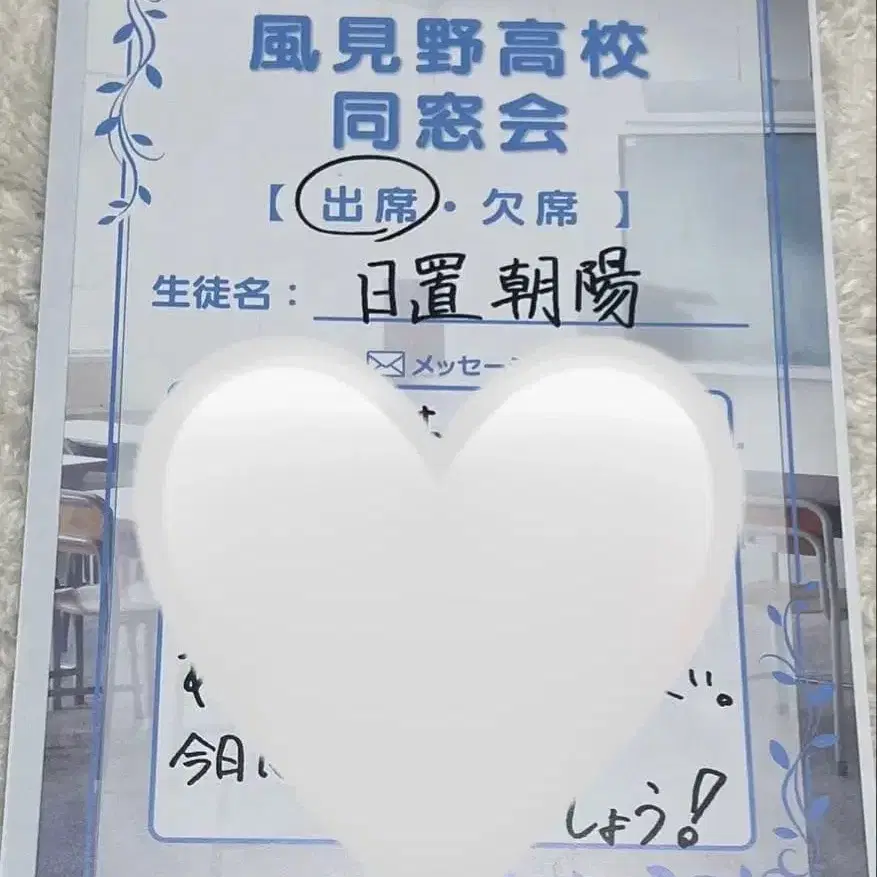 風見野高校
同窓会
【 出席・欠席 】
生徒名： 日置 朝陽
メッセー
今日
しょう！